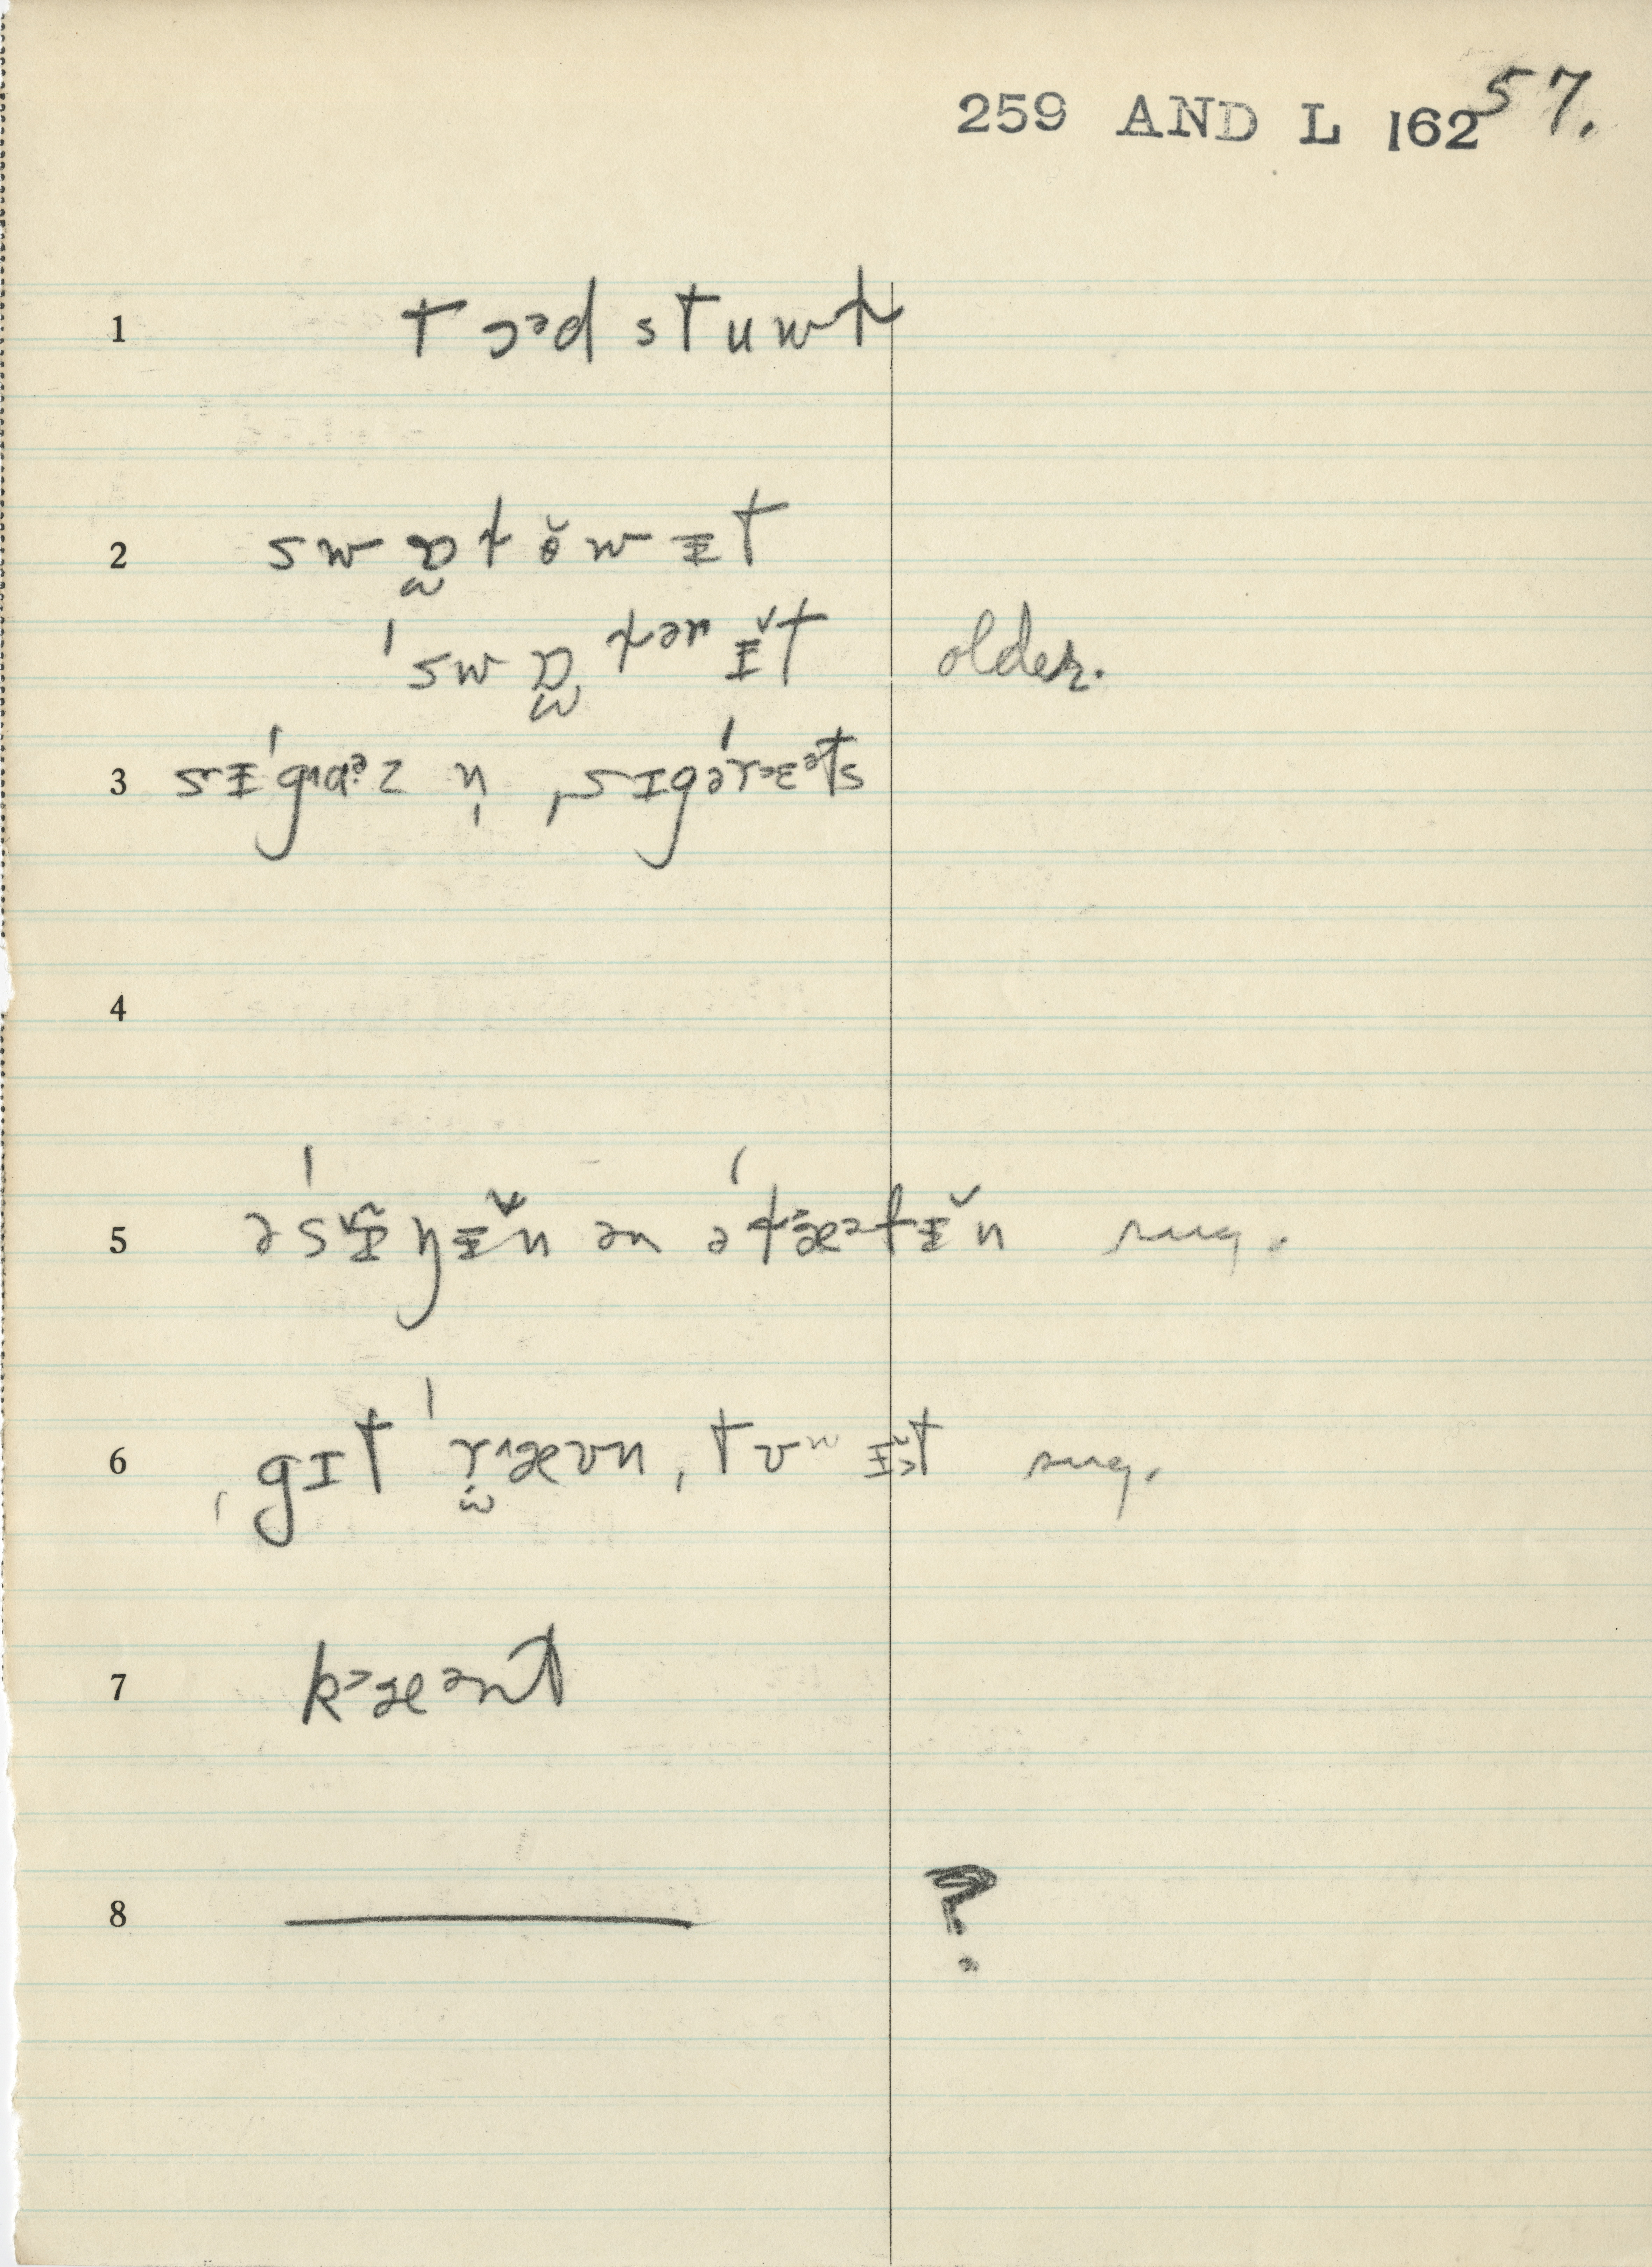 259 AND L 162 57.
1 t ɔᵊd stuwɫ
2 sw ɒ̰ ɫ ŏ w ɪt
ˈsw ɒ ɫər ɪ̆t older.
3 sɪˈgɑᵊz n̩ ˌsɪgəˈrɛᵊts
4
5 əˈsɪ̆ŋɪ̆n ən əˈɫæᵊfɪ̆n sug.
6 ˌgɪt ˈr^æʊn, tʊʷ ɪ̆t sug.
7 k>æᵊnt
8 ?